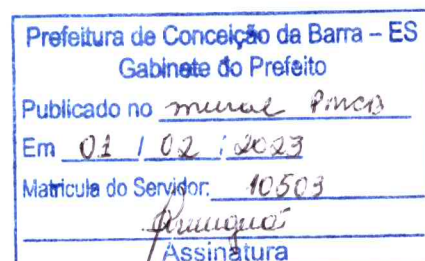 Prefeitura de Conceição da Barra – ES
Gabinete do Prefeito
Publicado no mural PMCB
Em 01 / 02 / 2023
Matricula do Servidor: 10503
Assinatura